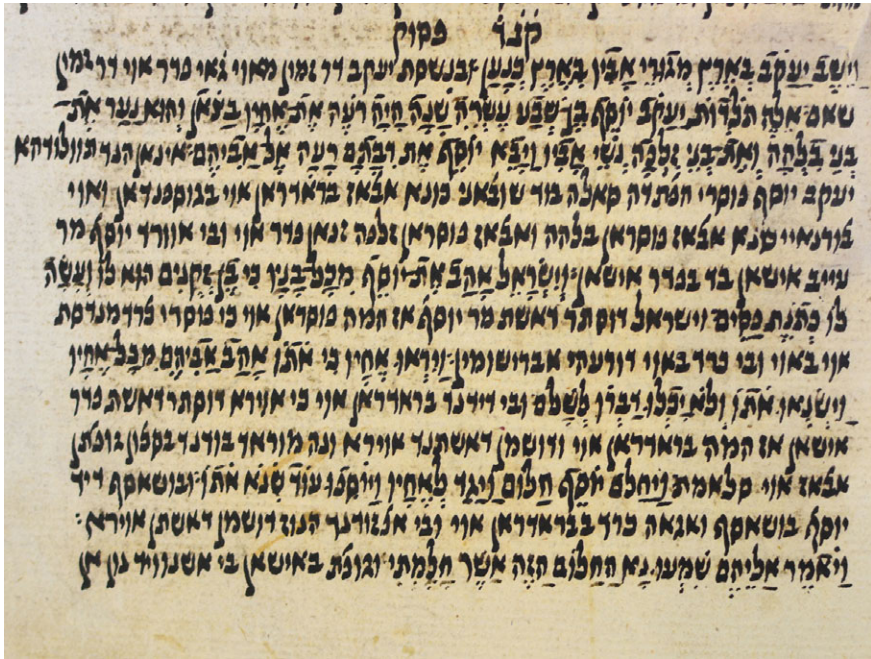 קנד פסוק
וישב יעקב בארץ מגורי אביו בארץ כנען ובנשסת יעקב דר זמין מאוי גאי פדר אוי דר זמין
שאם אלה תלדות יעקב יוסף בן שבע עשרה שנה היה רעה את אחיו בצאן והוא נער את
בני בלהה ואת בני זלפה נשי אביו ויבא יוסף את דבתם רעה אל אביהם אינאן הנד תוולודהא
יעקב יוסף פוסרי הפתדה סאלה בוד שובאני כונא אבאז בראדראן אוי בגוספנדאן ואוי
בורנאיי כונא אבאז פוסראן בלהה ואבאז פוסראן זלפה זנאן פדר אוי ובי אוורד יוסף מר
עייב אישאן בד בפדר אישאן וישראל אהב את יוסף מכל בניו כי בן זקנים הוא לו ועשה
לו כתנת פסים וישראל דוסתר דאשת מר יוסף אז המה פוסראן אוי כי פוסרי כרדמנדסת
אוי באוי ובי כרד באוי דורעהי אברישומין ויראו אחיו כי אתו אהב אביהם מכל אחיו
וישנאו אתו ולא יכלו דברו לשלם ובי דידנד בראדראן אוי כי אוירא דוסתר דאשת פדר
אישאן אז המה בראדראן אוי ודושמן דאשתנד אוירא ונה מוראד בודנד בסכון גופתן
אבאז אוי סלאמת ויחלם יוסף חלום ויגד לאחיו ויוספו עוד שנא אתו ובושאסף דיד
יוסף בושאסף ואגאה כרד בבראדראן אוי ובי אבזודנד הנוז דושמן דאשתן אוירא
ויאמר אליהם שמעו נא החלום הזה אשר חלמתי וגופת באישאן בי אשנוויד נון אן